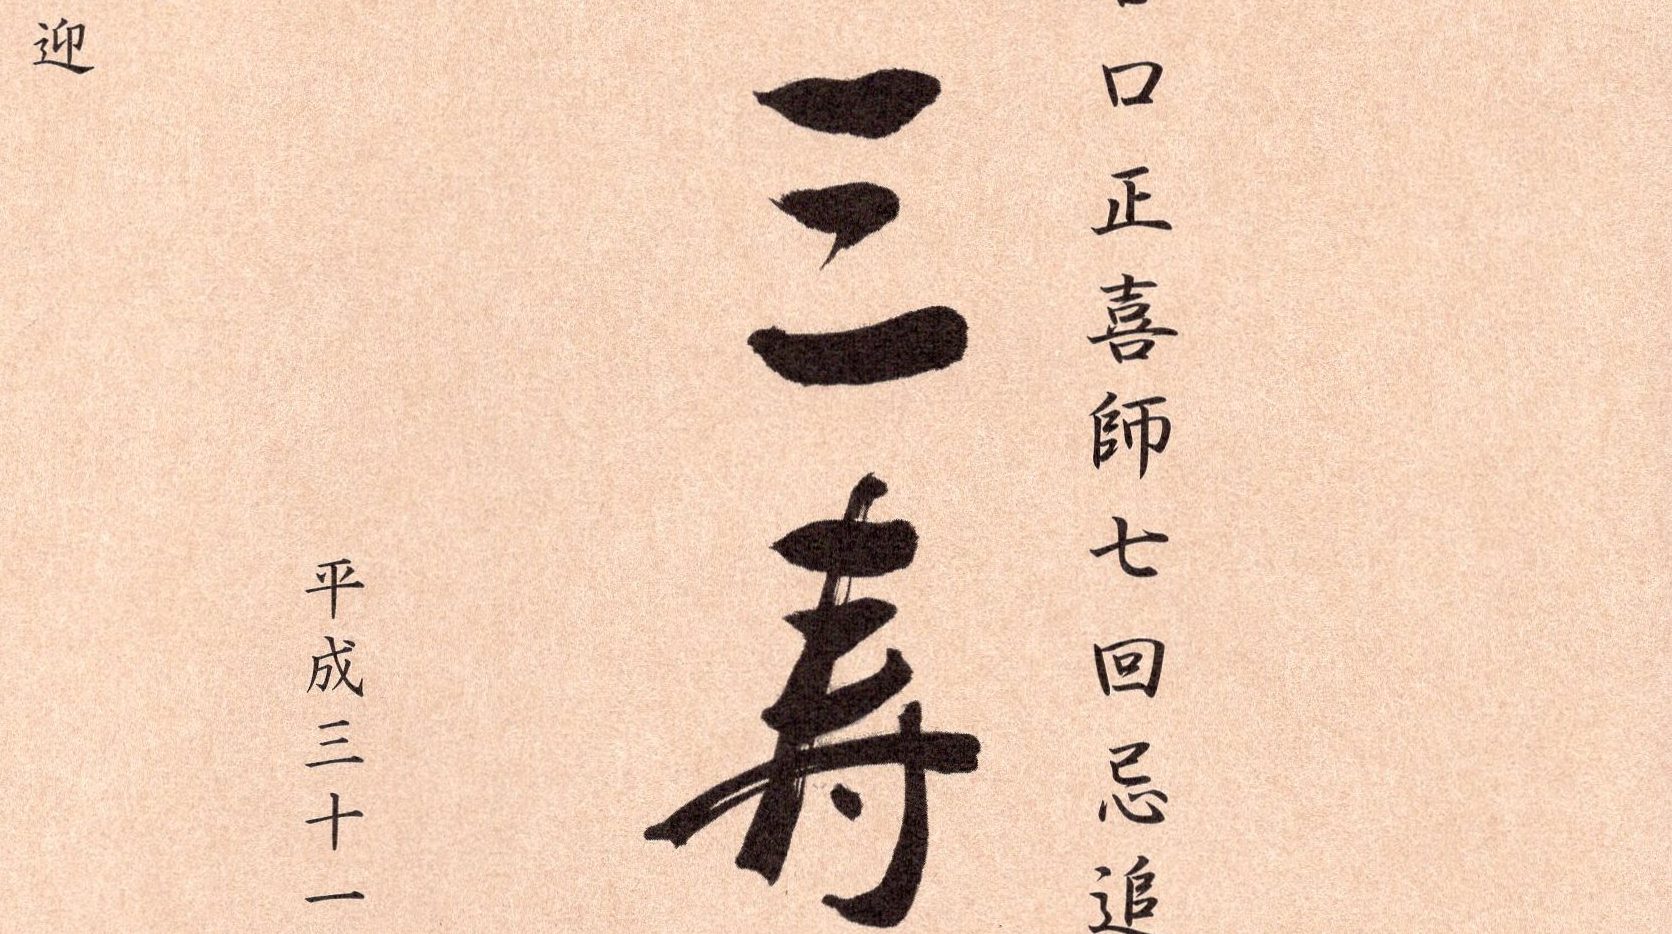 口正喜師七回忌追
三寿
平成三十一
迎